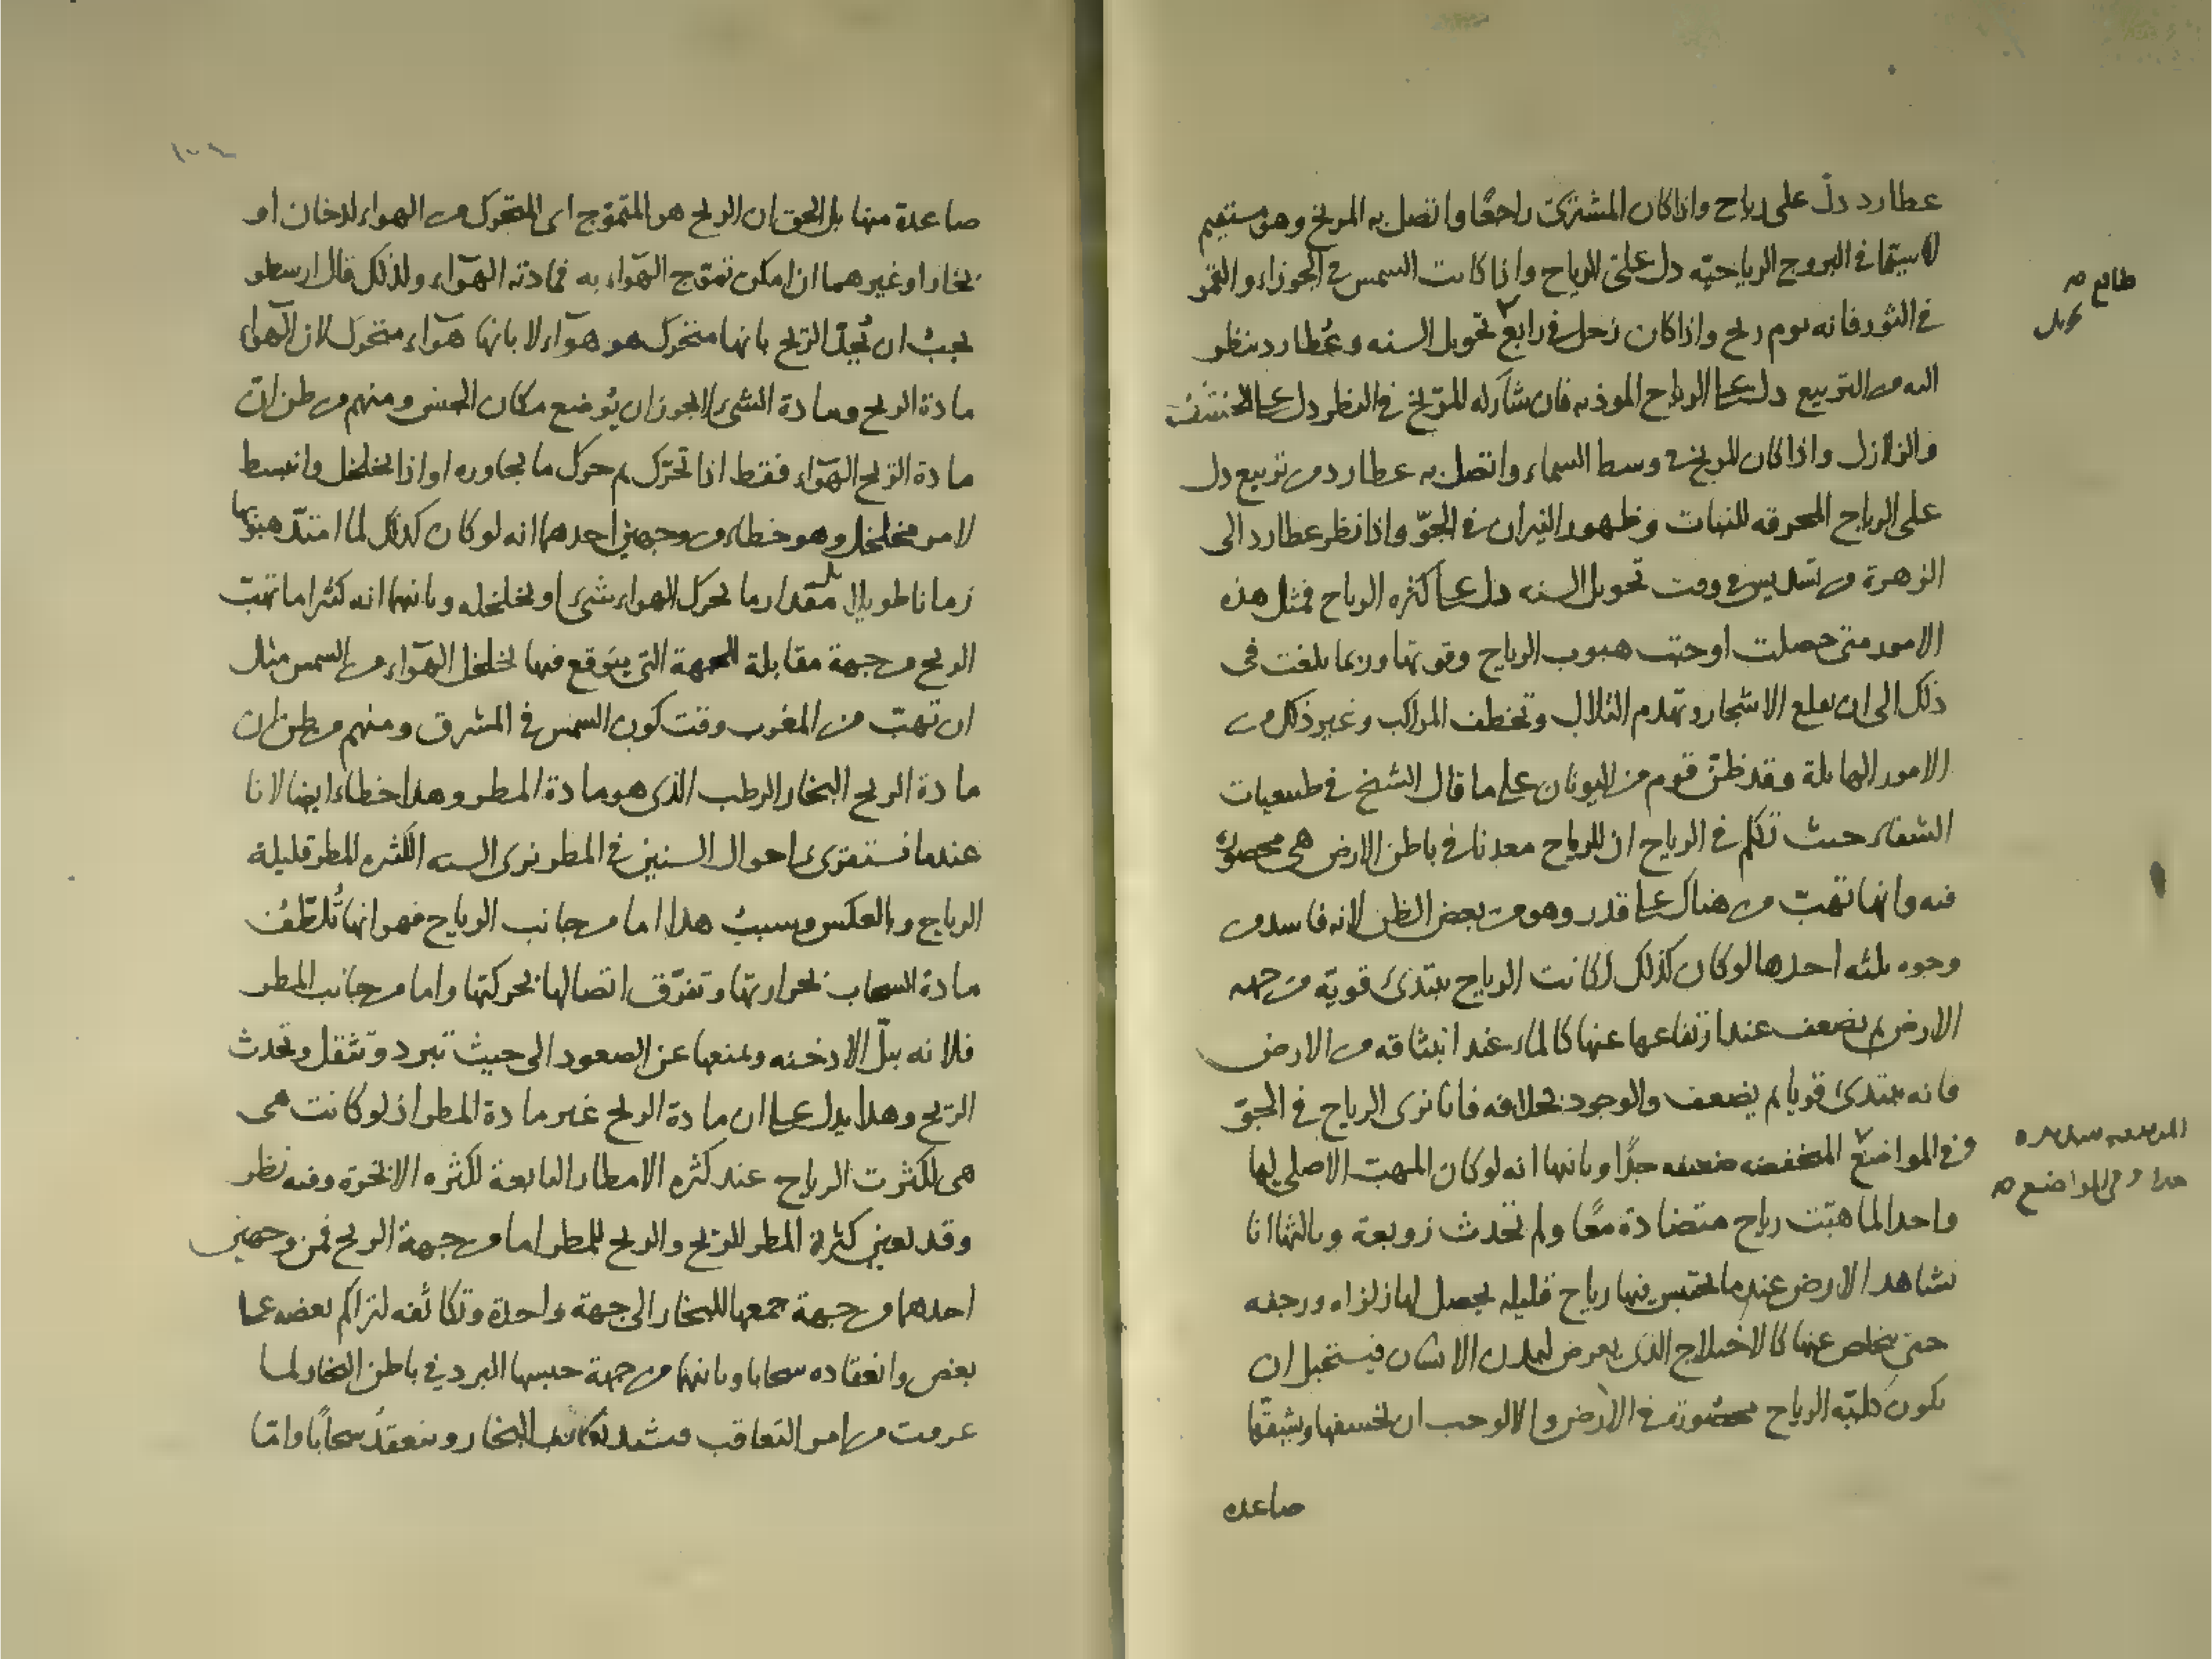 عطارد دلّ على رياح واذا كان المشترى راجعًا واتصل به المريخ وهو مستقيم
لا سيّما في البروج الرياحيّه دل على الرياح واذا كانت الشمس في الجوزاء والقمر
في الثور فانه يوم ريح واذا كان زحل في رابع تحويل السنه وعُطارد ينظر
اليه من التربيع دل على الرياح الموذيه فان شاركه المرّيخ في النظر دل على الخسف
والزلازل واذا كان المريخ في وسط السماء واتصل به عطارد من تربيع دل
على الرياح المحرقه للنبات وظهور النيران في الجوّ واذا نظر عطارد الى
الزهرة من تسديس في وقت تحويل السنه دل على كثره الرياح فمثل هذه
الامور متى حصلت اوجبت هبوب الرياح وقوتها وربما بلغت في
ذلك الى ان تقلع الاشجار وتهدم التلال وتخطف المراكب وغير ذلك من
الامور الهايلة وقد ظنّ قوم من اليونان على ما قال الشيخ في طبيعيات
الشفاء حيث تكلم في الرياح ان للرياح معدنا في باطن الارض هي محصورة
فيه وانها تهبّ من هناك على قدر وهو من بعض الظن لانه فاسد من
وجوه ثلثه احدها لو كان كذلك لكانت الرياح تبتدئ قويّة من جهه
الارض ثم يضعف عند ارتفاعها عنها كالماء عند انبثاقه من الارض
فانه يبتدئ قويا ثم يضعف والوجود بخلافه فانا نرى الرياح في الجوّ
وفي المواضع المنخفضه ضعيفه جدًا وثانيها انه لو كان المهبّ الاصلي لها
واحدا لما هبّت رياح متضادة معًا ولم تحدث زوبعة وثالثها انا
نشاهد الارض عندما تحتبس فيها رياح قليله يحصل لها زلزله ورجفه
حتى يتخلص عنها كالاختلاج الذى يعرض لبدن الانسان فيستحيل ان
يكون كليّه الرياح محصورة في الارض والا لوجب ان تخسفها وتشقّها
صاعده
طالع
تحويل
وفي المواضع
صاعدة منها بل الحق ان الريح هو المتموّج اى المتحرك من الهواء لدخان او
بخار او غيرهما ان امكن تموّج الهوآء به فمادته الهوآء ولذلك قال ارسطو
يجب ان تُحدّ الريح بانها متحرك هو هوآء لا بانها هوآء متحرك لان الهوآء
مادة الريح ومادة الشئ لا يجوز ان يُوضع مكان الجنس ومنهم من ظن ان
مادة الريح الهوآء فقط اذا تحرّك ثم حرك ما يجاوره او اذا تخلخل وانبسط
لامر مخلخل وهو خطاء من وجهين احدهما انه لو كان كذلك لما امتدّ هبوبها
زمانا طويلا بل مقدار ما يحرك الهواء شئ او يخلخله وثانيها انه كثيرا ما تهبّ
الريح من جهة مقابلة للجهة التي يتوقع فيها تخلخل الهوآء من الشمس مثل
ان تهبّ من المغرب وقت كون الشمس في المشرق ومنهم من ظن ان
مادة الريح البخار الرطب الذى هو مادة المطر وهذا خطاء ايضا لانا
عندما نستقرى احوال السنين في المطر نرى السنه الكثيره المطر قليلة
الرياح وبالعكس وسببُ هذا اما من جانب الرياح فهو انها تُلطّفُ
مادة السحاب بحرارتها وتفرّق اتصالها بحركتها واما من جانب المطر
فلانه يبلّ الادخنه ويمنعها عن الصعود الى حيث تبرد وتثقل وتحدث
الريح وهذا يدل على ان مادة الريح غير مادة المطر اذ لو كانت هي
هي لكثرت الرياح عند كثره الامطار التابعة لكثره الابخرة وفيه نظر
وقد تعين كثرة المطر للريح والريح للمطر اما من جهة الريح فمن وجهين
احدهما من جهة جمعها للبخار الى جهة واحدة وتكاثفه لتراكم بعضه على
بعض وانعقاده سحابا وثانيها من جهة حبسها البرد في باطن البخار لما
عرفت من امر التعاقب فيشتد تكاثف البخار وينعقدُ سحابًا وامّا